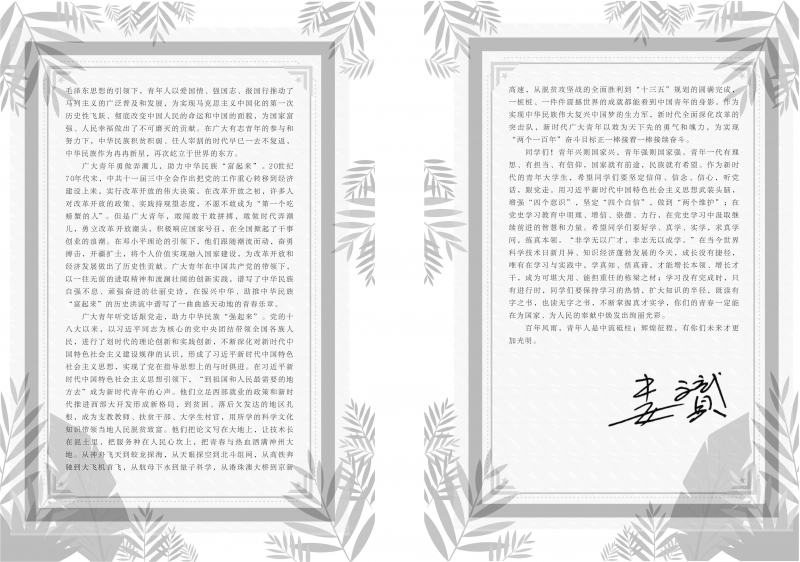 毛泽东思想的引领下，青年人以爱国情、强国志、报国行推动了
马列主义的广泛普及和发展，为实现马克思主义中国化的第一次
历史性飞跃、彻底改变中国人民的命运和中国的面貌，为国家富
强、人民幸福做出了不可磨灭的贡献。在广大有志青年的参与和
努力下，中华民族积贫积弱、任人宰割的时代早已一去不复返，
中华民族作为冉冉新星，再次屹立于世界的东方。
广大青年勇做弄潮儿，助力中华民族“富起来”。20世纪
70年代末，中共十一届三中全会作出把党的工作重心转移到经济
建设上来，实行改革开放的伟大决策。在改革开放之初，许多人
对改革开放的政策、实践持观望态度，不愿不敢成为“第一个吃
螃蟹的人”。但是广大青年，敢闯敢干敢拼搏，敢做时代弄潮
儿，勇立改革开放潮头，积极响应国家号召，在全国掀起了干事
创业的浪潮。在邓小平理论的引领下，他们跟随潮流而动，奋勇
搏击，开疆扩土，将个人价值实现融入国家建设，为改革开放和
经济发展做出了历史性贡献。广大青年在中国共产党的带领下，
以一往无前的进取精神和波澜壮阔的创新实践，谱写了中华民族
自强不息、顽强奋进的壮丽史诗，在振兴中华、助推中华民族
“富起来”的历史洪流中谱写了一曲曲感天动地的青春乐章。
广大青年听党话跟党走，助力中华民族“强起来”。党的十
八大以来，以习近平同志为核心的党中央团结带领全国各族人
民，进行了划时代的理论创新和实践创新，不断深化对新时代中
国特色社会主义建设规律的认识，形成了习近平新时代中国特色
社会主义思想，实现了党在指导思想上的与时俱进。在习近平新
时代中国特色社会主义思想引领下，“到祖国和人民最需要的地
方去”成为新时代青年的心声。他们立足西部就业的政策和新时
代推进西部大开发形成新格局，到贫困、落后欠发达的地区扎
根，成为支教教师、扶贫干部、大学生村官，用所学的科学文化
知识带领当地人民脱贫致富。他们把论文写在大地上，让技术长
在泥土里，把服务种在人民心坎上，把青春与热血洒满神州大
地。从神舟飞天到蛟龙探海，从天眼探空到北斗组网，从高铁奔
驰到大飞机首飞，从航母下水到量子科学，从港珠澳大桥到京新
高速，从脱贫攻坚战的全面胜利到“十三五”规划的圆满完成，
一桩桩、一件件震撼世界的成就都能看到中国青年的身影。作为
实现中华民族伟大复兴中国梦的生力军，新时代全面深化改革的
突击队，新时代广大青年以敢为天下先的勇气和魄力，为实现
“两个一百年”奋斗目标正一棒接着一棒接续奋斗。
同学们！青年兴则国家兴，青年强则国家强。青年一代有理
想、有担当、有信仰，国家就有前途，民族就有希望。作为新时代
的青年大学生，希望同学们要坚定信仰、信念、信心，听党
话，跟党走。用习近平新时代中国特色社会主义思想武装头脑，
增强“四个意识”，坚定“四个自信”，做到“两个维护”；在
党史学习教育中明理、增信、崇德、力行，在党史学习中汲取继
续前进的智慧和力量。希望同学们要好学、真学、实学，求真学
问，练真本领。“非学无以广才，非志无以成学。”在当今世界
科学技术日新月异、知识经济蓬勃发展的今天，成长没有捷径，
唯有在学习与实践中，学真知、悟真谛，才能增长本领、增长才
干，成为可堪大用、能担重任的栋梁之材；学习没有完成时，只
有进行时，同学们要保持学习的热情，扩大知识的半径，既读有
字之书，也读无字之书，不断掌握真才实学，你们的青春一定能
在为国家、为人民的奉献中焕发出绚丽光彩。
百年风雨，青年人是中流砥柱；辉煌征程，有你们未来才更
加光明。